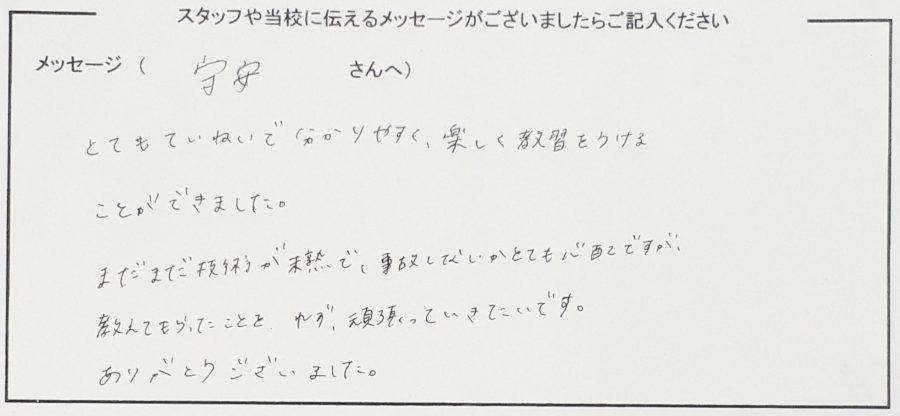 スタッフや当校に伝えるメッセージがございましたらご記入ください
メッセージ （ 守安 さんへ）
とてもていねいで分かりやすく、楽しく教習をうける
ことができました。
まだまだ技術が未熟で、事故しないかとても心配ですが、
教えてもらったことを、 頑張っていきたいです。
ありがとうございました。